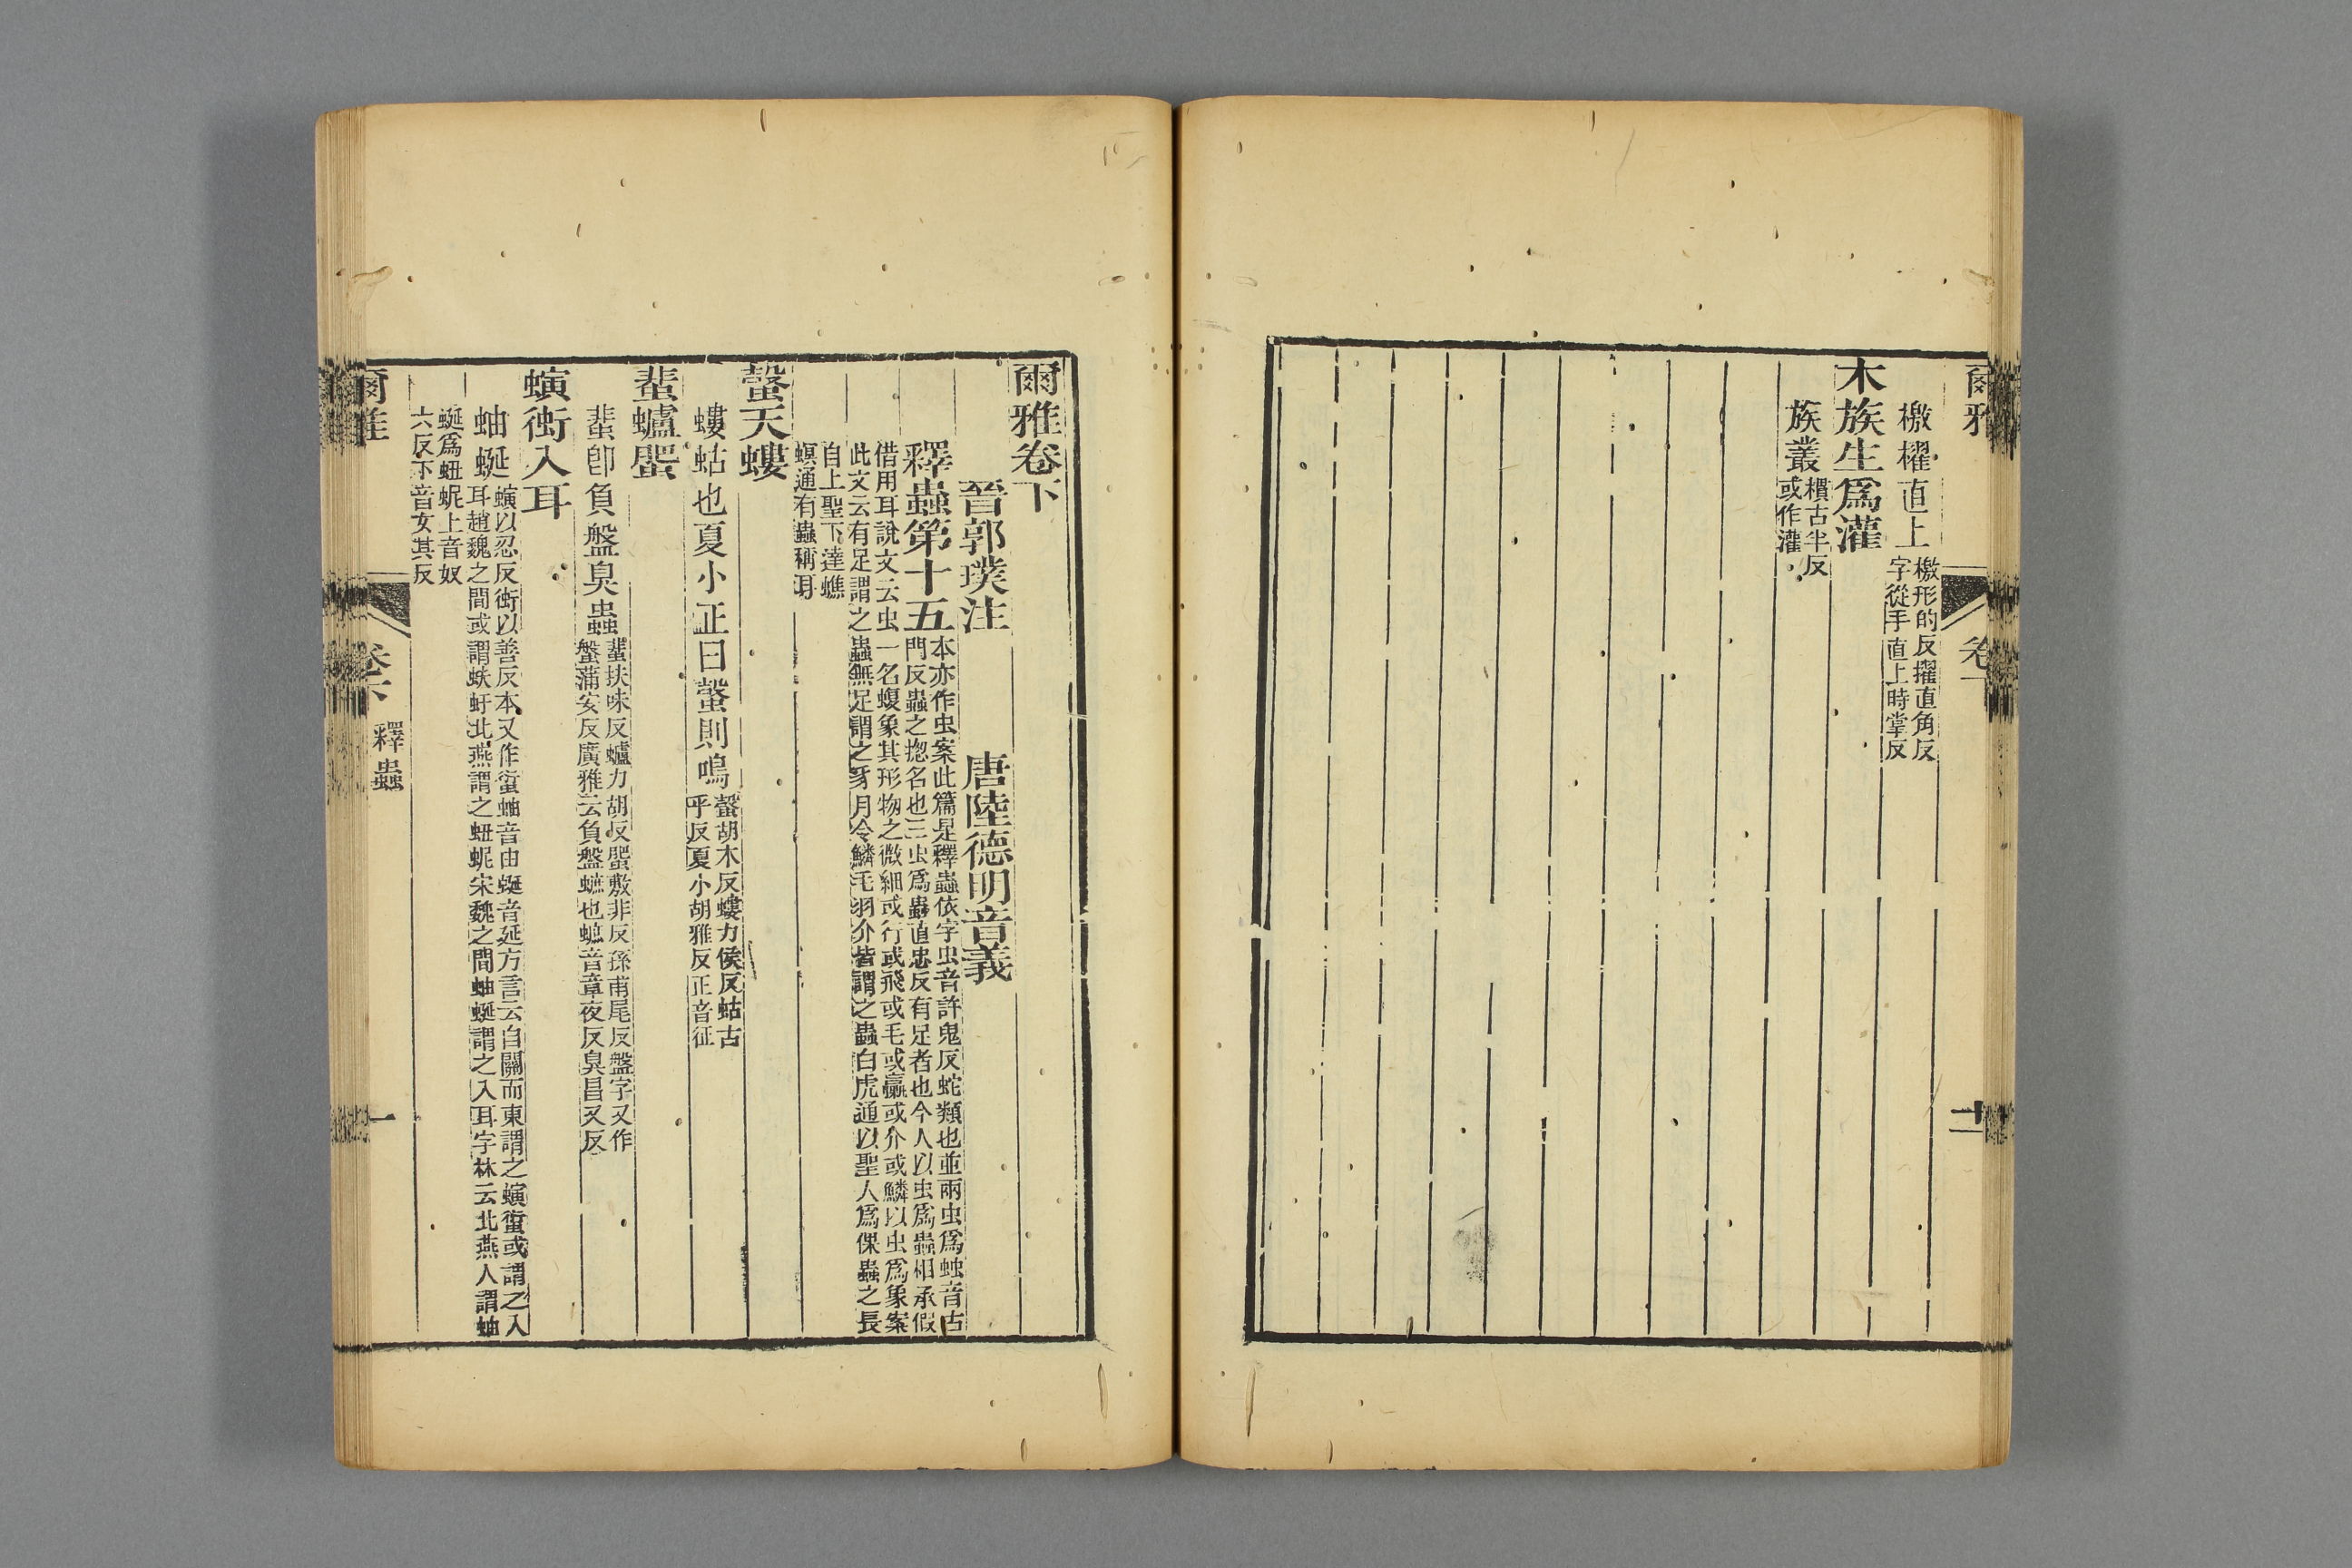 爾雅
卷
十一
檄櫂直上
檄形的反擢直角反
字從手直上時掌反
木族生爲灌
族叢
樌古半反
或作灌
爾雅卷下
晉郭璞注 唐陸德明音義
釋蟲第十五
本亦作虫案此篇是釋蟲依字虫音許鬼反蛇類也並兩虫爲䖵音古
門反蟲之揔名也三虫爲蟲直忠反有足者也今人以虫爲蟲相承假
借用耳說文云虫一名蝮象其形物之微細或行或飛或毛或蠃或介或鱗以虫爲象案
此文云有足謂之蟲無足謂之豸月令鱗毛羽介皆謂之蟲白虎通以聖人爲倮蟲之長
自上聖下達蟭
螟通有蟲稱耳
螜天螻
螻蛄也夏小正曰螜則鳴
螜胡木反螻力侯反蛄古
乎反夏小胡雅反正音征
蜚蠦蜰
蜚卽負盤臭蟲
蜚扶味反蠦力胡反蜰敷非反孫甫尾反盤字又作
螌蒲安反廣雅云負螌蟅也蟅音章夜反臭昌又反
螾衝入耳
蚰蜒
螾以忍反衝以善反本又作蚻蚰音由蜒音延方言云自關而東謂之螾蚻或謂之入
耳趙魏之間或謂蚨虶北燕謂之蚭蚭宋魏之間蚰蜒謂之入耳字林云北燕人謂蚰
蜒爲蚭蚭上音奴
六反下音女其反
爾雅
卷下
釋蟲
一